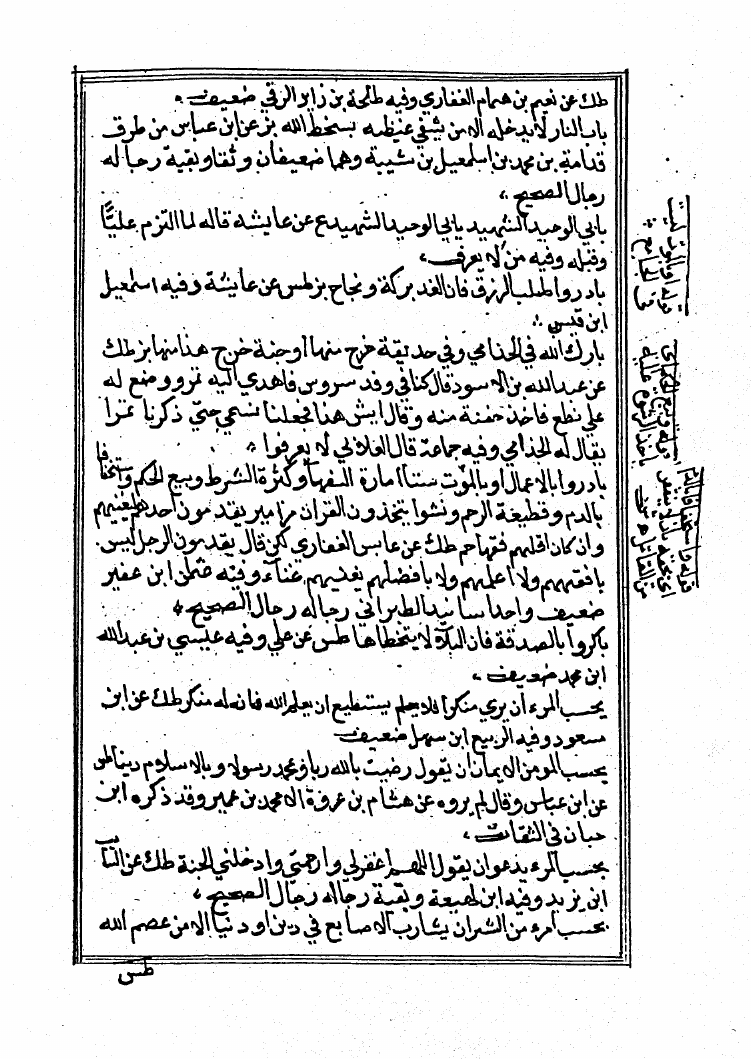 طك عن نعيم بن همام الغفاري وفيه طلحة بن زيد الرقي ضعيف
باب النار لا يدخله الا من شفي غيظه بسخط الله بز عن ابن عباس من طرق
قدامة بن محمد بن اسمعيل بن شيبة وهما ضعيفان وثقا وبقية رجاله
رجال الصحيح
بابي الوحيد الشهيد بابي الوحيد الشهيد ع عن عايشة قاله لما التزم عليًّا
وقبله وفيه من لا يعرف
بادروا طلب الرزق فان الغد بركة ونجاح بز طس عن عايشة وفيه اسمعيل
ابن قيس
بارك الله في الجذامي وفي حديقة خرج منها او جنة خرج هذا منها بز طك
عن عبد الله بن الاسود قال كنا في وفد سدوس فاهدي اليه تمر ووضع له
علي نطع فاخذ حفنة منه وقال ايش هذا فجعلنا نسمي حتي ذكرنا تمرا
يقال له الجذامي وفيه جماعة قال العلائي لا يعرفوا
بادروا بالاعمال او بالموت ستا امارة السفها وكثرة الشرط وبيع الحكم واستخفافا
بالدم وقطيعة الرحم ونشوا يتخذون القران مزامير يقدمون احدهم ليغنيهم
وان كان اقلهم فقها حم طك عن عابس الغفاري لكن قال يقدمون الرجل ليس
بافقههم ولا اعلمهم ولا بافضلهم يغنيهم غناء وفيه عثمن ابن عمير
ضعيف واحد اسانيد الطبراني رجاله رجال الصحيح
باكروا بالصدقة فان البلاء لا يتخطاها طس عن علي وفيه عيسي بن عبد الله
ابن محمد ضعيف
بحسب المرء ان يري منكرا فلا يستطيع ان يعلم الله فانه له منكر طك عن ابن
مسعود وفيه الربيع ابن سهل ضعيف
بحسب المومن الايمان ان يقول رضيت بالله ربا ومحمد رسولا وبالاسلام دينا طس
عن ابن عباس وقال لم يروه عن هشام بن عروة الا محمد بن عمير وقد ذكره ابن
حبان في الثقات
بحسب المرء يدعو ان يقول اللهم اغفر لي وارحمني وادخلني الجنة طك عن السائب
ابن يزيد وفيه ابن لهيعة وبقية رجاله رجال الصحيح
بحسب امرء من الشر ان يشار بالاصابع في دين او دنيا الا من عصم الله
طس
قوله او بالموت ليست
في الجامع
قوله وبيع الحكم اي
باخذ الرشوة عليه
قوله واستخفافا بالدم